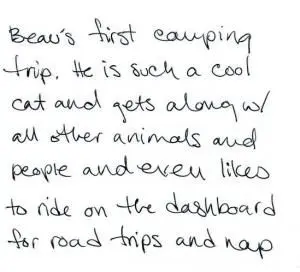 Beau's first camping
trip. He is such a cool
cat and gets along w/
all other animals and
people and even likes
to ride on the dashboard
for road trips and nap